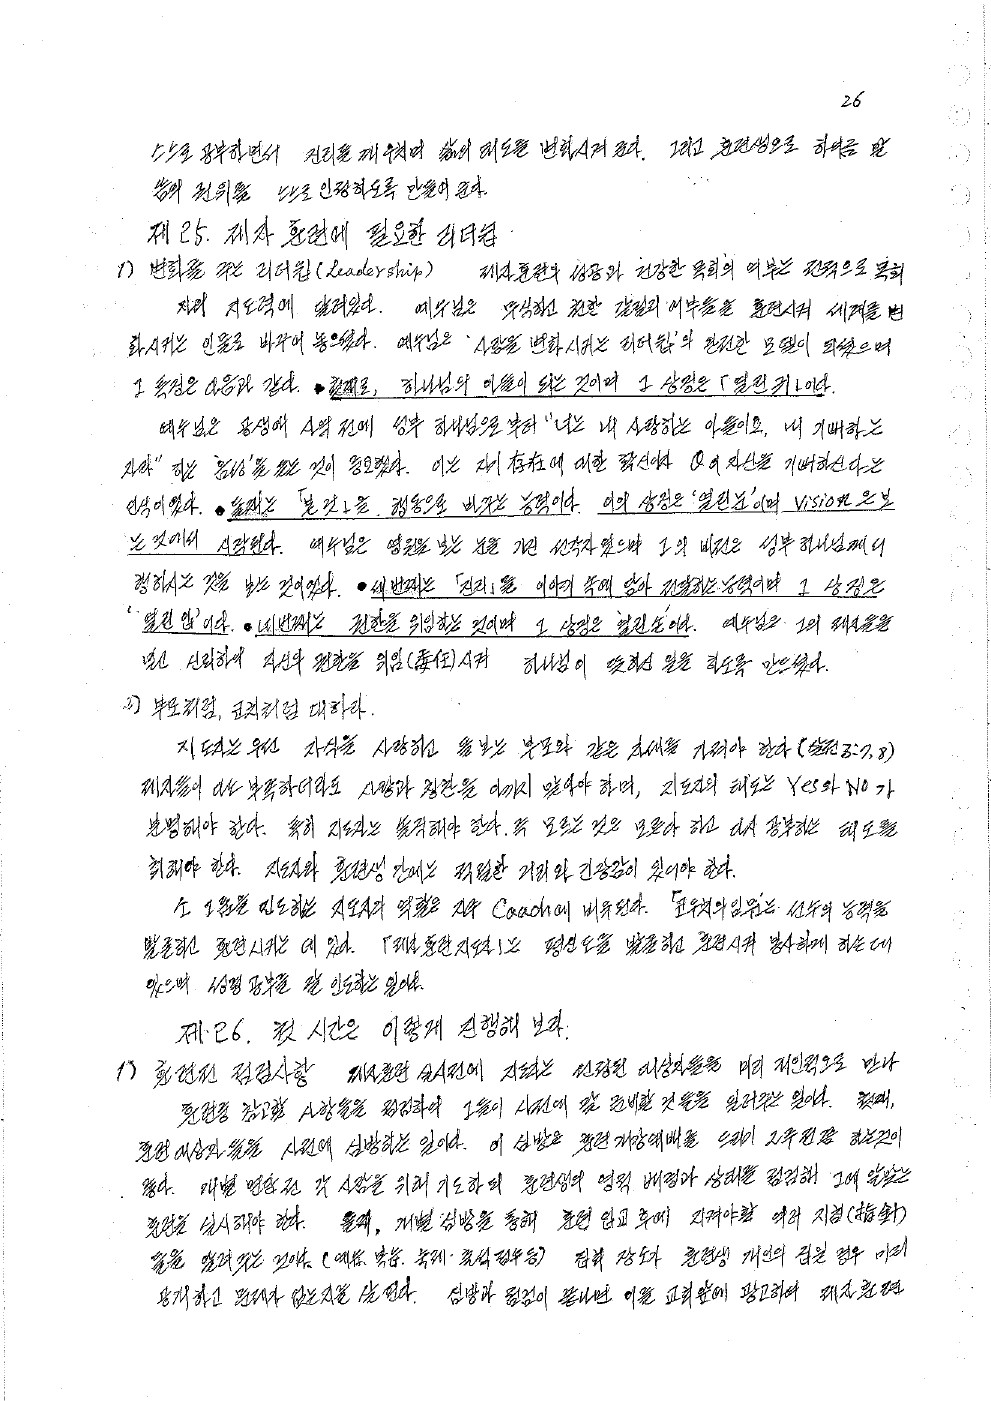 26
스스로 공부하면서 진리를 깨우치며 삶의 태도를 변화시켜 준다. 그리고 훈련생으로 하여금 말
씀의 권위를 스스로 인정하도록 만들어 준다.
제 25. 제자 훈련에 필요한 리더쉽
1) 변화를 주는 리더쉽(Leadership) 제자훈련의 성공과 건강한 목회의 여부는 전적으로 목회
자의 지도력에 달려있다. 예수님은 무식하고 천한 갈릴리 어부들을 훈련시켜 세계를 변
화시키는 인물로 바꾸어 놓으셨다. 예수님은 '사람을 변화시키는 리더쉽'의 완전한 모델이 되셨으며
그 특징은 다음과 같다. ● 첫째로, 하나님의 아들이 되는 것이며 그 상징은 「열린 귀」이다.
예수님은 공생애 사역 전에 성부 하나님으로 부터 "너는 내 사랑하는 아들이요, 내 기뻐하는
자라" 하는 '음성'을 듣는 것이 중요했다. 이는 자기 存在에 대한 확신이자 하나님이 자신을 기뻐하신다는
인식이었다. ● 둘째는 「본 것」을 행동으로 바꾸는 능력이다. 이의 상징은 '열린 눈'이며 Vision은 보
는 것에서 시작된다. 예수님은 영원을 보는 눈을 가진 선각자였으며 그의 비전은 성부 하나님께서
행하시는 것을 보는 것이었다. ● 세번째는 「진리」를 이야기 속에 담아 전달하는 능력이며 그 상징은
'열린 입'이다. ● 네번째는 권한을 위임하는 것이며 그 상징은 '열린손'이다. 예수님은 그의 제자들을
믿고 신뢰하여 자신의 권한을 위임(委任)시켜 하나님이 뜻하신 일을 하도록 만드셨다.
2) 부모처럼, 코치처럼 대하라.
지도자는 우선 자식을 사랑하고 돌보는 부모와 같은 자세를 가져야 한다(살전 2:7,8)
제자들이 다소 부족하더라도 사랑과 칭찬을 아끼지 말아야 하며, 지도자의 태도는 Yes와 No가
분명해야 한다. 특히 지도자는 솔직해야 한다. 즉 모르는 것은 모른다 하고 다시 공부하는 태도를
취해야 한다. 지도자와 훈련생 간에는 적절한 거리와 긴장감이 있어야 한다.
소그룹을 인도하는 지도자의 역할은 자주 Coach에 비유된다. 「코우치의 임무」는 선수의 능력을
발견하고 훈련시키는 데 있다. 「제자훈련 지도자」는 평신도를 발견하고 훈련시켜 봉사하게 하는데
있으며 성경 공부를 잘 인도하는 일이다.
제 26. 첫 시간은 이렇게 진행해 보라.
1) 훈련전 점검사항 제자훈련 실시전에 지도자는 선정된 대상자들을 미리 개인적으로 만나
훈련중 참고할 사항들을 점검하여 그들이 사전에 잘 준비할 것들을 일러주는 일이다. 첫째,
훈련 대상자들을 사전에 심방하는 일이다. 이 심방은 훈련 개강예배를 드리기 2주전쯤 하는것이
좋다. 개별 면담 전 각 사람을 위해 기도하며 훈련생의 영적 배경과 상태를 점검해 그에 알맞는
훈련을 실시해야 한다. 둘째, 개별 심방을 통해 훈련 입교 후에 지켜야할 여러 지침(指針)
들을 알려 주는 것이다. (예습·복습·숙제·출석 점수 등) 집회 장소가 훈련생 개인의 집일 경우 미리
답사하고 문제가 없는지를 살핀다. 심방과 점검이 끝나면 이를 교회앞에 광고하여 제자훈련